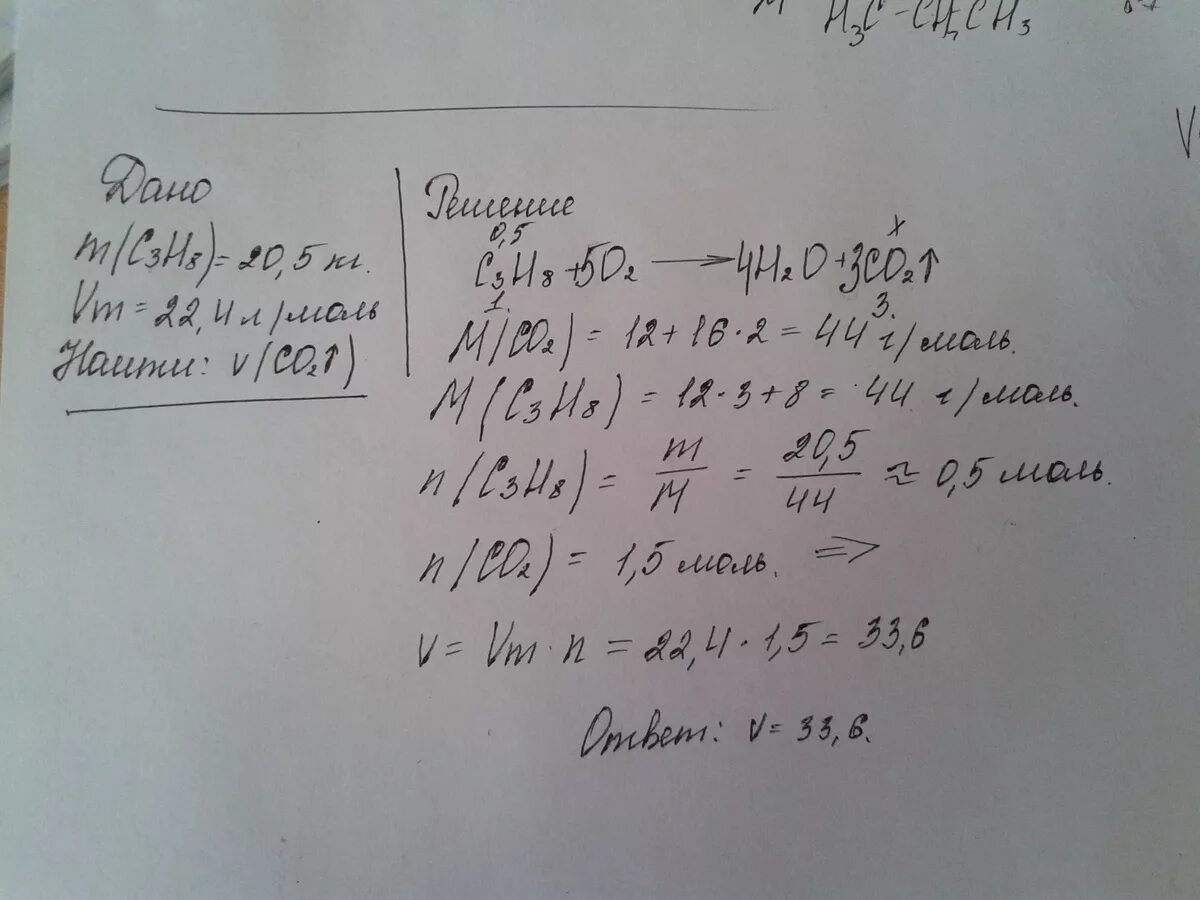 H₃C-CH₂CH₃
Дано
m(C₃H₈)=20,5 кг.
Vm=22,4 л/моль
Найти: v(CO₂↑)
Решение
0,5 x
C₃H₈+5O₂ → 4H₂O+3CO₂↑
1. 3.
M(CO₂) = 12+16·2 = 44 г/моль.
M(C₃H₈) = 12·3+8 = 44 г/моль.
n(C₃H₈) = m/M = 20,5/44 ≈ 0,5 моль.
n(CO₂) = 1,5 моль. ⇒
v = Vm·n = 22,4·1,5 = 33,6
Ответ: v=33,6.